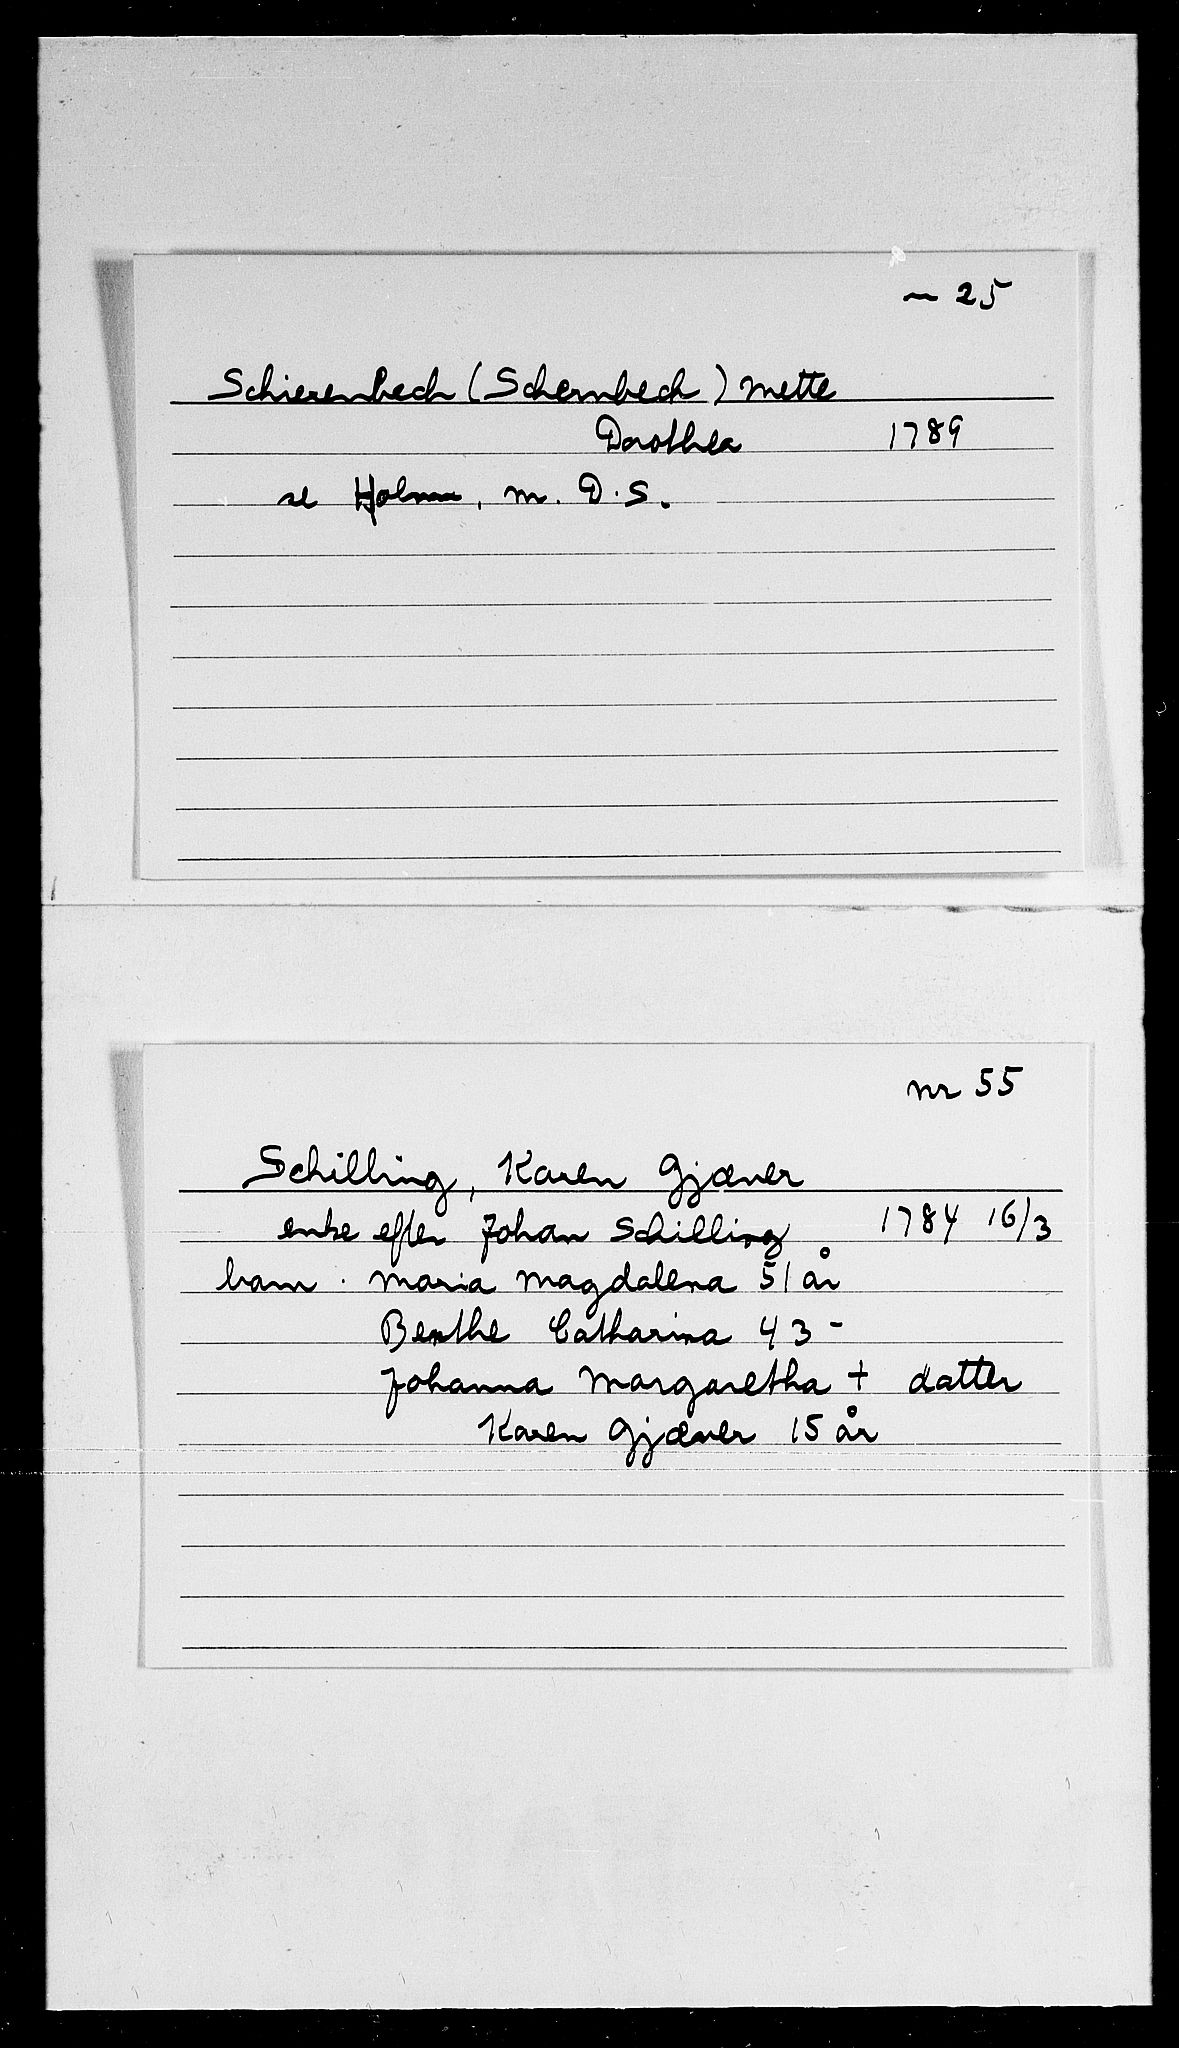 ~ 25
Schierenbech (Schernbech) Mette
Dorothea 1789
se Holm, M. D. S.
nr 55
Schilling, Karen Gjæver
enke efter Johan Schilling 1784 16/3
barn . Maria Magdalena 51 år
Benthe Catharina 43 -
Johanna Margaretha + datter
Karen Gjæver 15 år